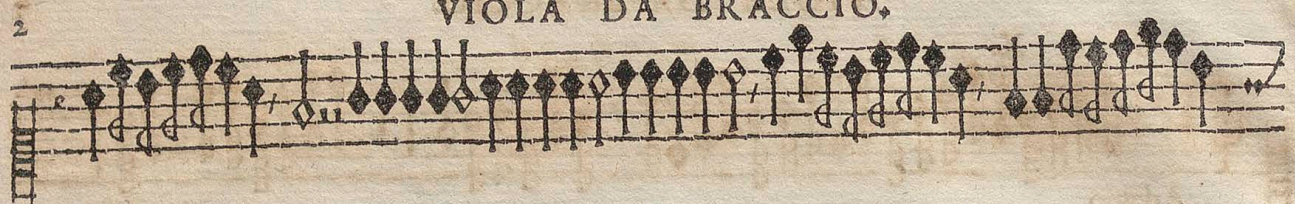 VIOLA DA BRACCIO.
2